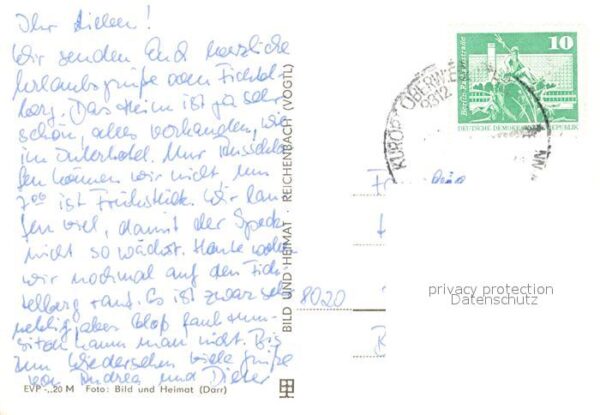 Ihr Lieben!
Wir senden Euch herzliche
Urlaubsgrüße vom Fichtel-
berg. Das Heim ist ja sehr
schön, alles vorhanden, wie
im Interhotel. Nur ausschla-
fen können wir nicht um
7⁰⁰ ist Frühstück. Wir lau-
fen viel, damit der Speck
nicht so wächst. Heute wollen
wir nochmal auf den Fich-
telberg rauf. Es ist zwar sehr
neblig, aber bloß faul rum-
sitzen kann man nicht. Bis
zum Wiedersehen viele Grüße
von Andrea und Dieter
EVP -,20 M Foto: Bild und Heimat (Darr)
BILD UND HEIMAT · REICHENBACH (VOGTL)
10
DEUTSCHE DEMOKRATISCHE REPUBLIK
KURORT OBERWIESENTHAL
9312
8020
privacy protection
Datenschutz